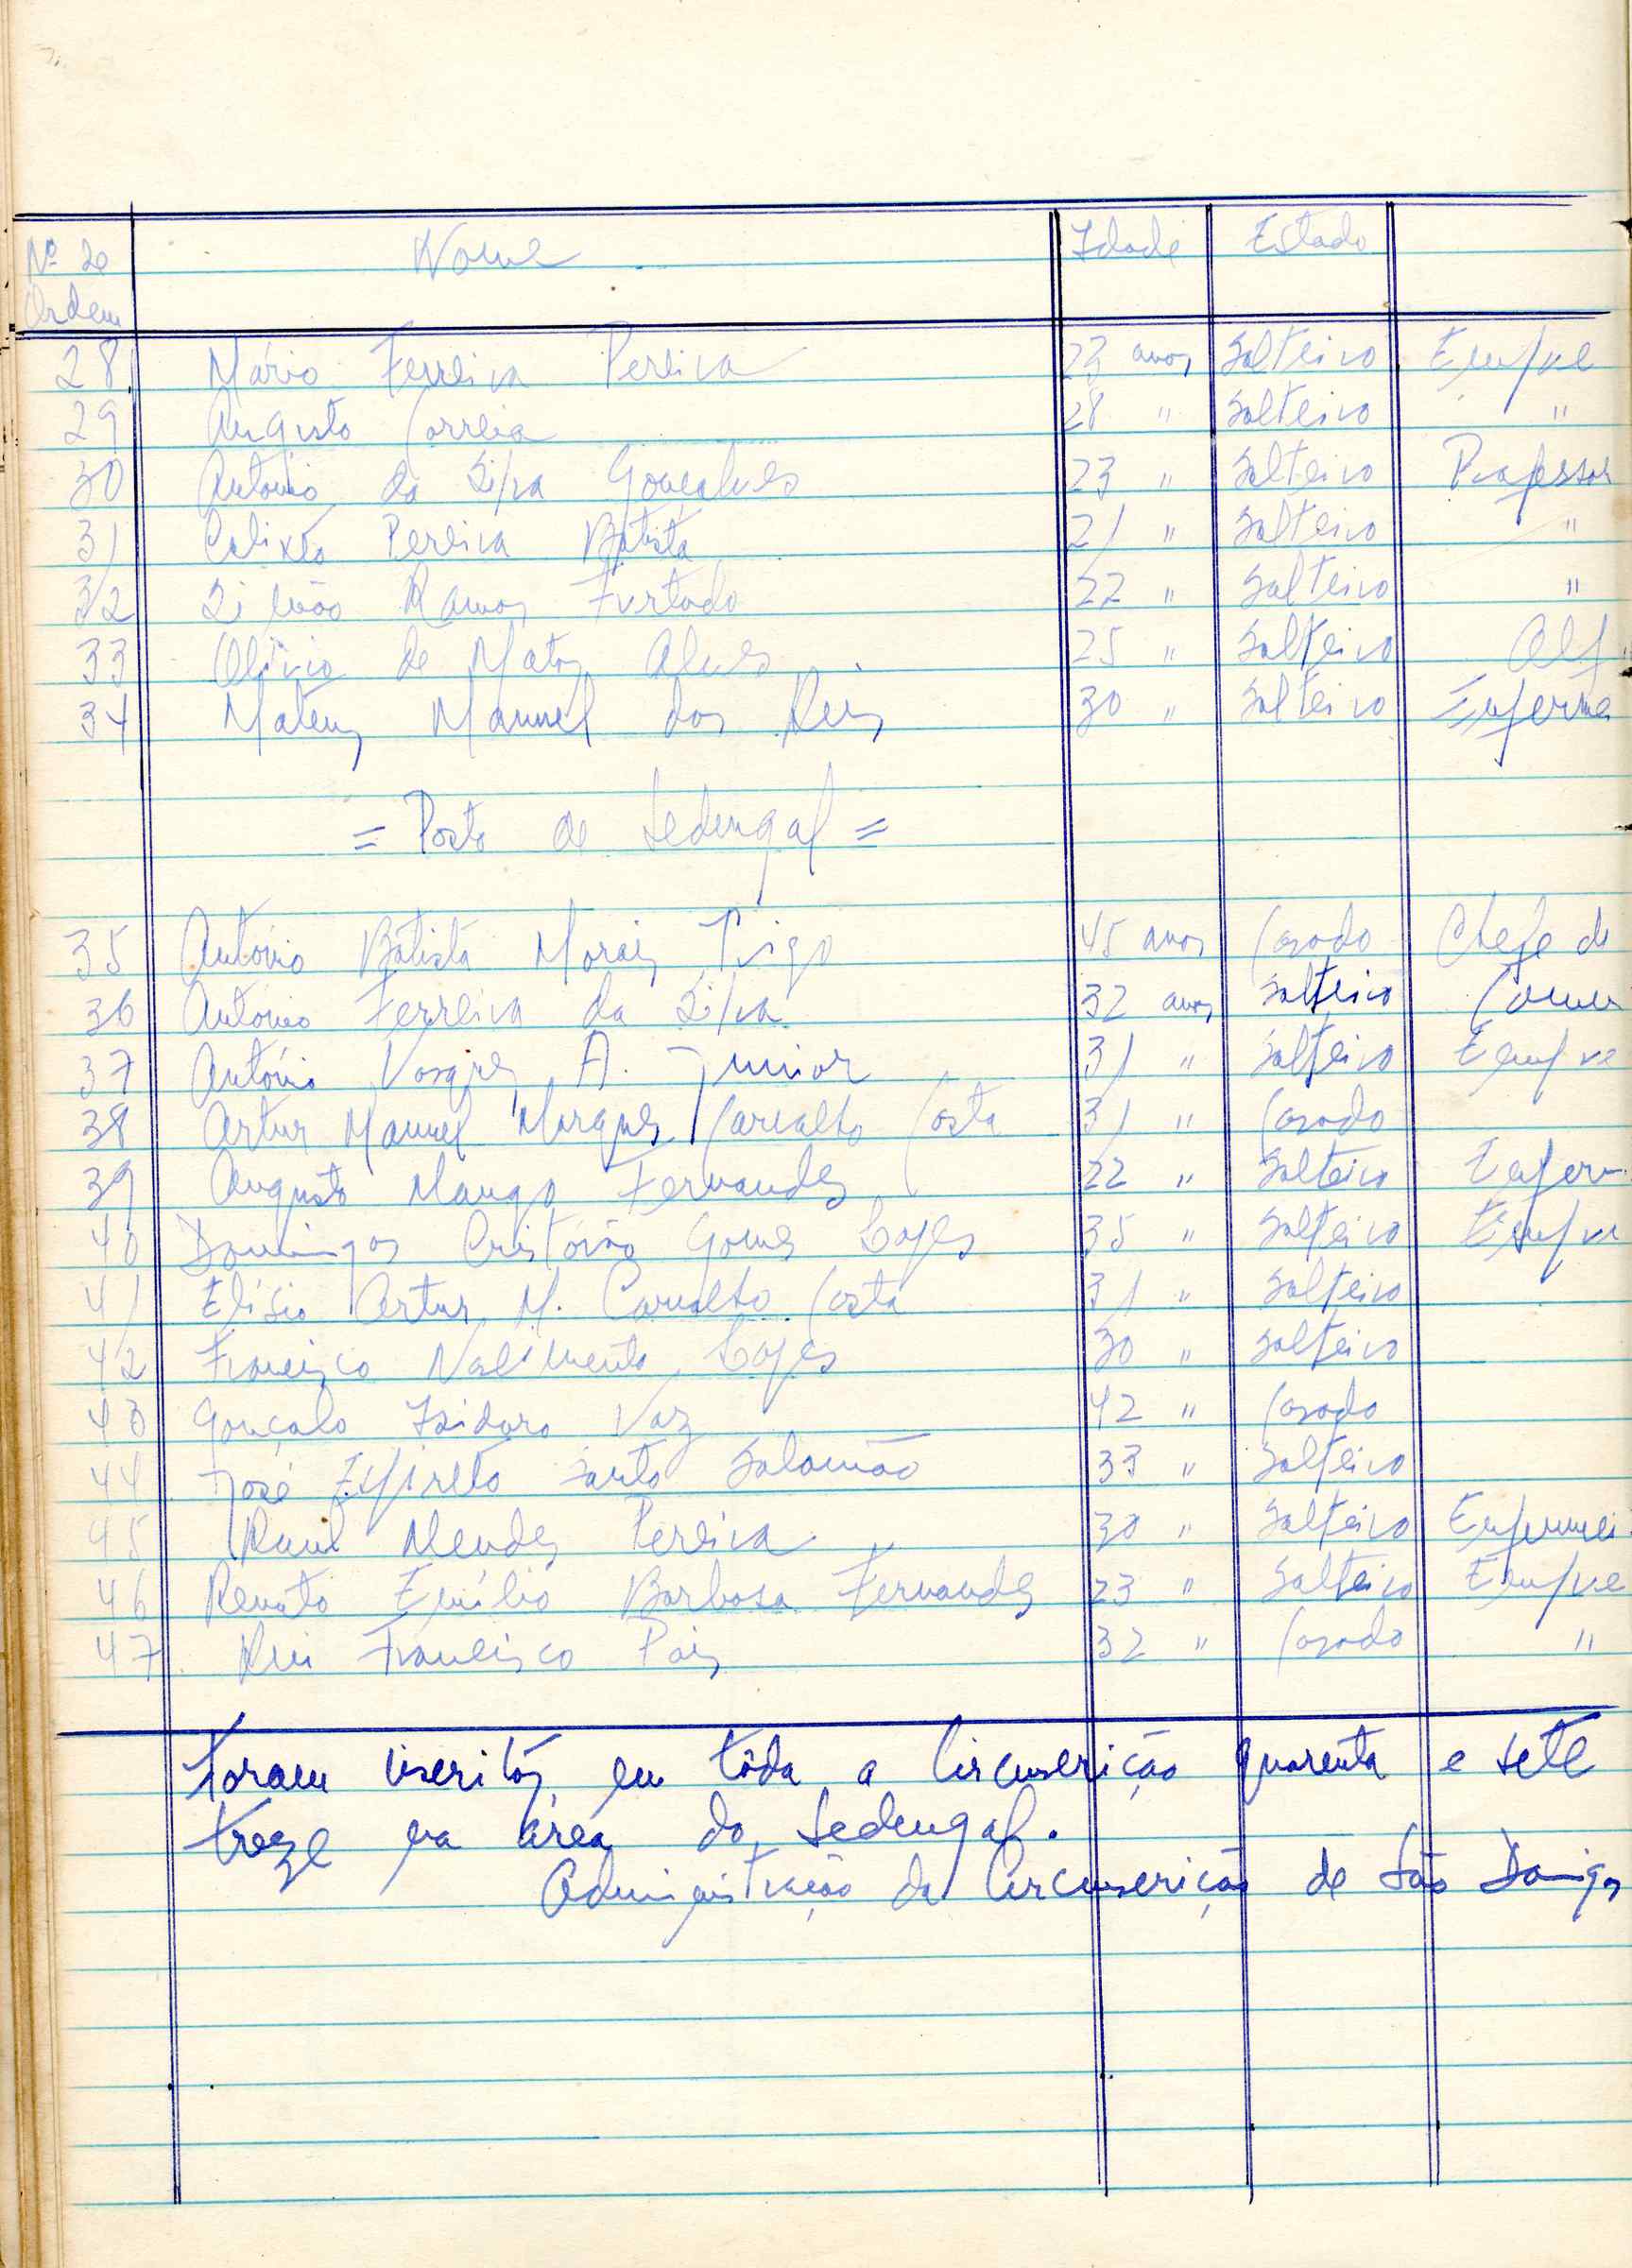 Nº de Nome Idade Estado
Ordem
28 Mário Ferreira Pereira 23 anos Solteiro Empre
29 Augusto Correia 28 " Solteiro "
30 António da Silva Gonçalves 23 " Solteiro Professor
31 Calixto Pereira Batista 21 " Solteiro "
32 Simão Ramos Furtado 22 " Solteiro "
33 Olívio de Matos Alves 25 " Solteiro Alf
34 Mateus Manuel dos Reis 30 " Solteiro Enferme
= Posto de Sedengal =
35 António Batista Morais Trigo 45 anos Casado Chefe de
36 António Ferreira da Silva 32 anos Solteiro Comer
37 António Vasques A. Junior 31 " Solteiro Empre
38 Artur Manuel Marques Carvalho Costa 31 " Casado
39 Augusto Mango Fernandes 22 " Solteiro Enferm
40 Domingos Cristóvão Gomes Lopes 35 " Solteiro Empre
41 Elísio Artur M. Carvalho Costa 31 " Solteiro
42 Francisco Nascimento Lopes 30 " Solteiro
43 Gonçalo Isidoro Vaz 42 " Casado
44 José Espireto Santo Salomão 33 " Solteiro
45 Raul Mendes Pereira 30 " Solteiro Enfermei
46 Renato Emílio Barbosa Fernandes 23 " Solteiro Empre
47 Rui Francisco Pais 32 " Casado "
Foram inscritos em tôda a Circunscrição quarenta e sete
treze na área do Sedengal.
Administração da Circunscrição de São Domingos